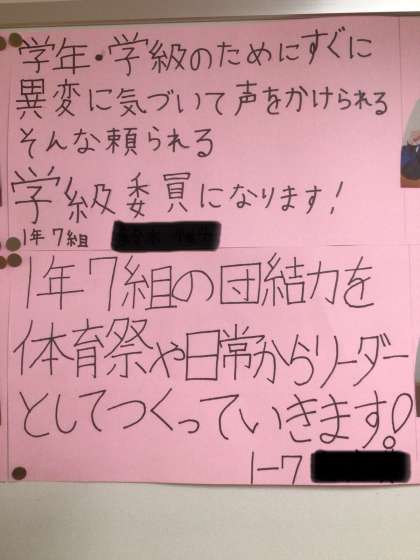 学年・学級のためにすぐに
異変に気づいて声をかけられる
そんな頼られる
学級委員になります!
1年7組
1年7組の団結力を
体育祭や日常からリーダー
としてつくっていきます!
1-7